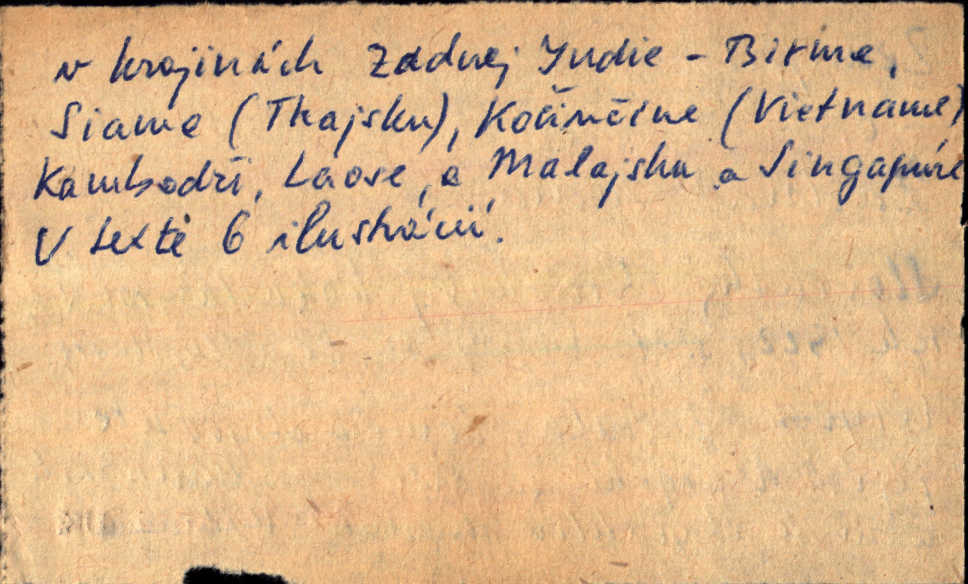 v krajinách Zadnej Indie - Birme,
Siame (Thajsku), Kočinčíne (Vietname)
Kambodži, Laose, a Malajsku a Singapúre
V texte 6 ilustrácií.